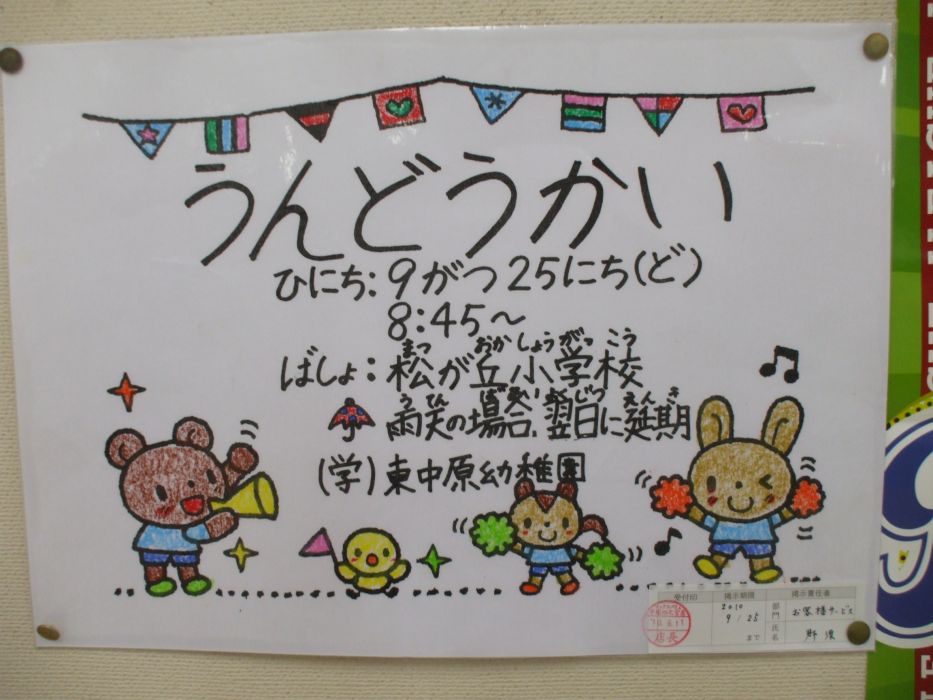 うんどうかい
ひにち:9がつ25にち(ど)
8:45〜
ばしょ:松が丘小学校
まつ おか しょうがっ こう
雨天の場合、翌日に延期
えんき
(学)東中原幼稚園
受付印 掲示期限 掲示責任者
2010 部門 お客様サービス
9/25 まで 氏名
店長